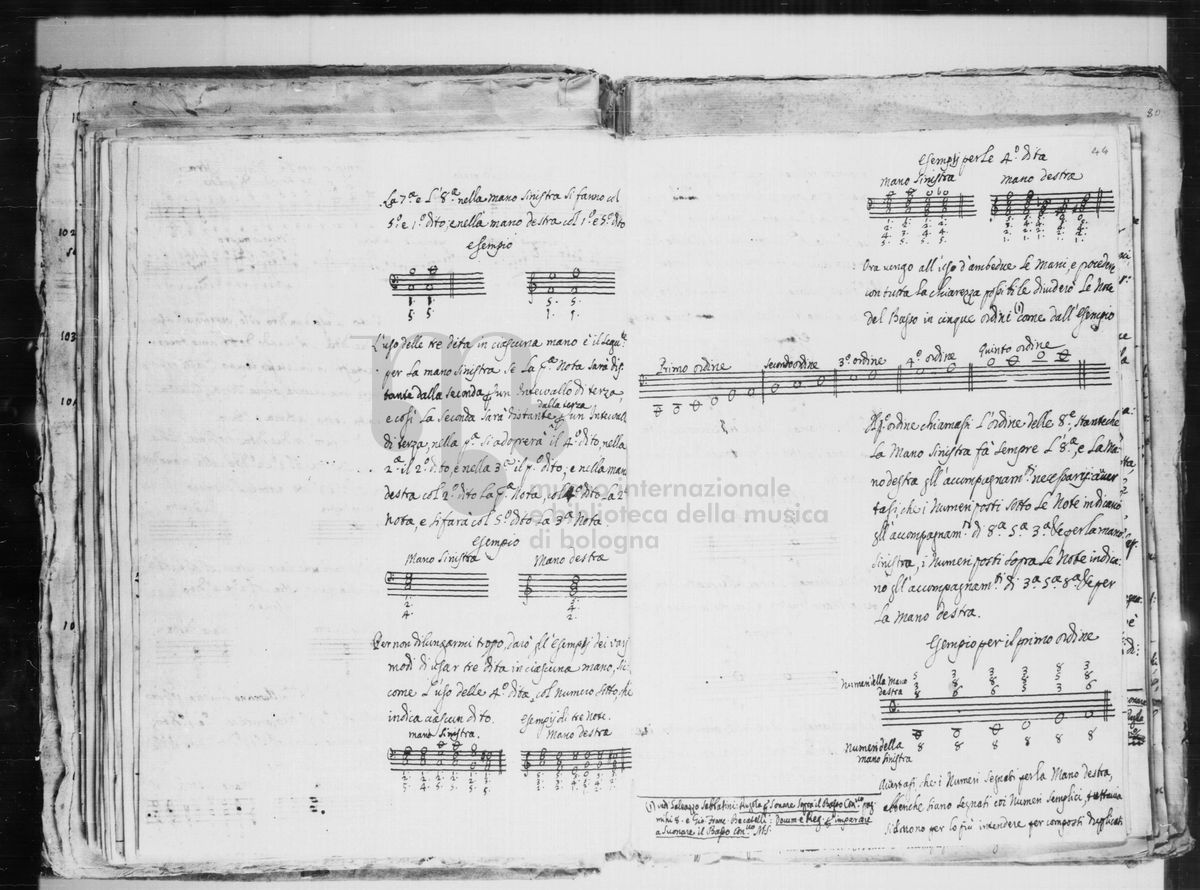 La 7.ª e L'8.ª nella mano sinistra si fanno col
5.º e 1.º dito, e nella mano destra col 1.º e 5.º dito
esempio
L'uso delle tre dita in ciascuna mano è il segu.te
per la mano sinistra se la p.ª Nota sarà dis
tante dalla seconda un Intervallo di terza,
e così La seconda sarà distante dalla terza un Intervall
di terza, nella p.ª si adoprerà il 4.º dito, nella
2.ª il 2.º dito, e nella 3.ª il p.º dito, e nella man
destra col 2.º dito La p.ª Nota, col 4.º dito La 2.ª
Nota, e si farà col 5.º dito La 3.ª Nota
esempio
Mano sinistra Mano destra
Per non dilungarmi tropo, darò gl'esempj dei varj
modi di usar tre dita in ciascuna mano, si
come L'uso delle 4.º dita, col numero sotto, che
indica ciascun dito. esempj di tre note.
mano sinistra. Mano destra
80
44
esempj per le 4.º dita
mano sinistra Mano destra
Ora vengo all'uso d'ambedue le mani, e procedere
con tutta La chiarezza possibile dividerò Le Note
del Basso in cinque ordini (1) come dall'esempio
Primo ordine secondo ordine 3.º ordine 4.º ordine Quinto ordine
ordine chiamasi L'ordine delle 8.e, stanteche
La Mano sinistra fà sempre L'8.ª, e La Ma
no destra gli accompagnam.ti necessarj: auer
tasi, che i Numeri posti sotto Le Note indicano
gl'accompagnam.ti di 8.ª 5.ª 3.ª per la mano
sinistra, i Numeri posti sopra Le Note indica
no gl'accompagnam.ti di 3.ª 5.ª 8.ª per
La mano destra.
Esempio per il primo ordine
Numeri della mano
destra
Numeri della
mano sinistra
Auertasi che i Numeri segnati per la Mano destra,
abbenche siano segnati coi Numeri semplici, tuttauia
si deuono per lo più intendere per composti
(1) vedi Galeazzo Sabbatini: Regola Sonare sopra il Basso Con.uo pag:
8. e Gio: Franc: imparare
a Suonare il Basso Con.uo MS:
museo internazionale
e biblioteca della musica
di bologna